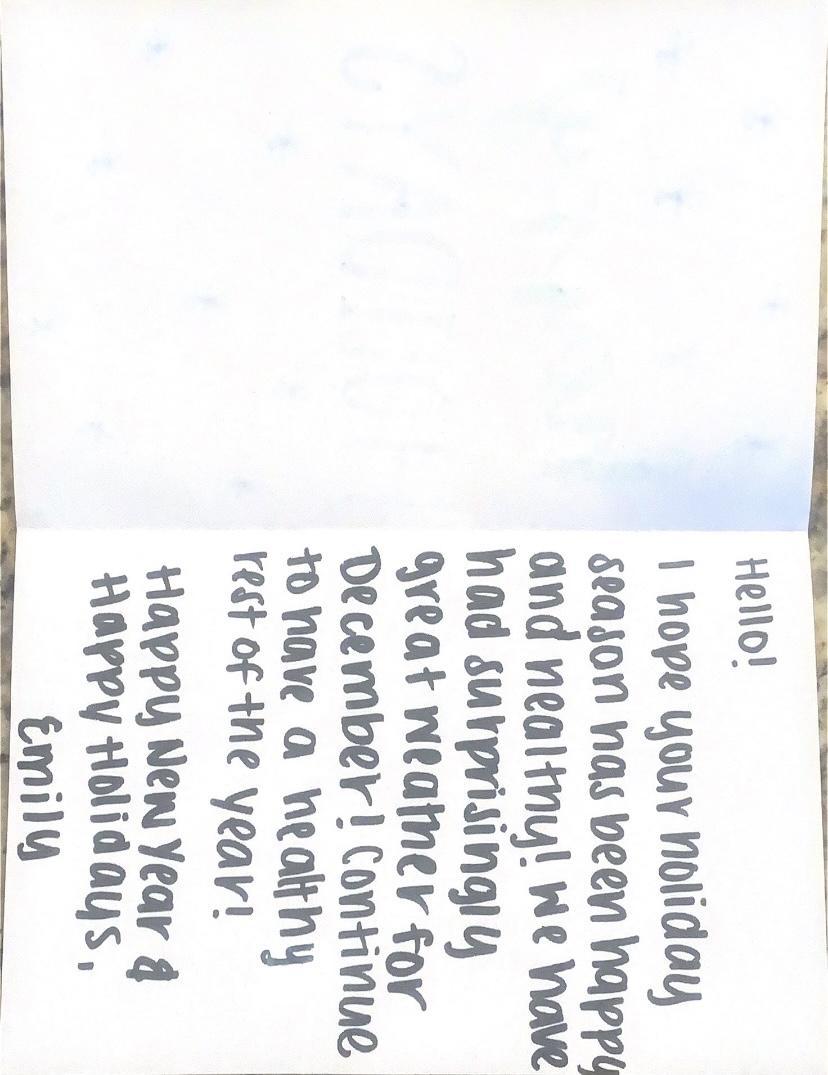 Hello!
I hope your holiday
season has been happy
and healthy! We have
had surprisingly
great weather for
December! Continue
to have a healthy
rest of the year!
Happy New Year &
Happy Holidays,
Emily